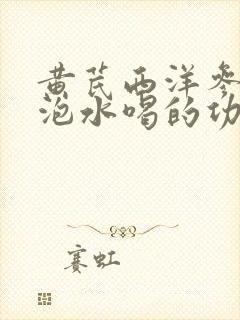 黄芪西洋参
泡水喝的功
赛虹